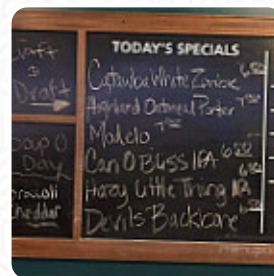 Draft
Draft
Soup O
Day
Broccoli
Cheddar
TODAY'S SPECIALS
Catawba White Zombie 6.50
Highland Oatmeal Porter 7.50
Modelo
Can O Bliss IPA 6.50
Hazy Little Thing IPA
Devils Backbone